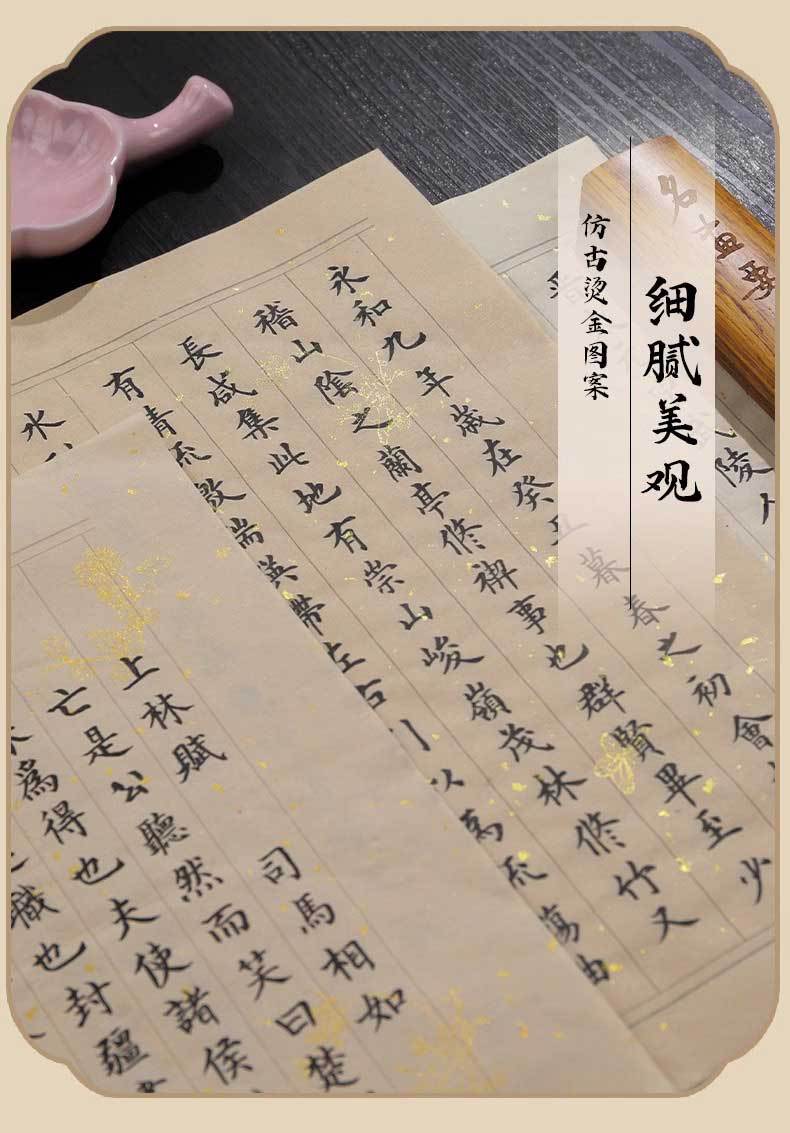 细腻美观
仿古烫金图案
永和九年歲在癸丑暮春之初會
稽山陰之蘭亭修禊事也群賢畢至少
長咸集此地有崇山峻嶺茂林修竹又
有清流激湍英帶左右引以為流觴曲
水
陵人
上林賦 司馬相如
亡是公聽然而笑曰楚
為得也夫使諸侯
職也封疆